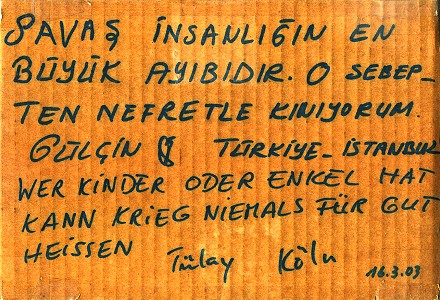 SAVAŞ İNSANLIĞIN EN
BÜYÜK AYIBIDIR. O SEBEP_
TEN NEFRETLE KINIYORUM.
GÜLÇİN TÜRKİYE_ İSTANBUL
WER KINDER ODER ENKEL HAT
KANN KRIEG NIEMALS FÜR GUT
HEISSEN Tülay Köln
16.3.03